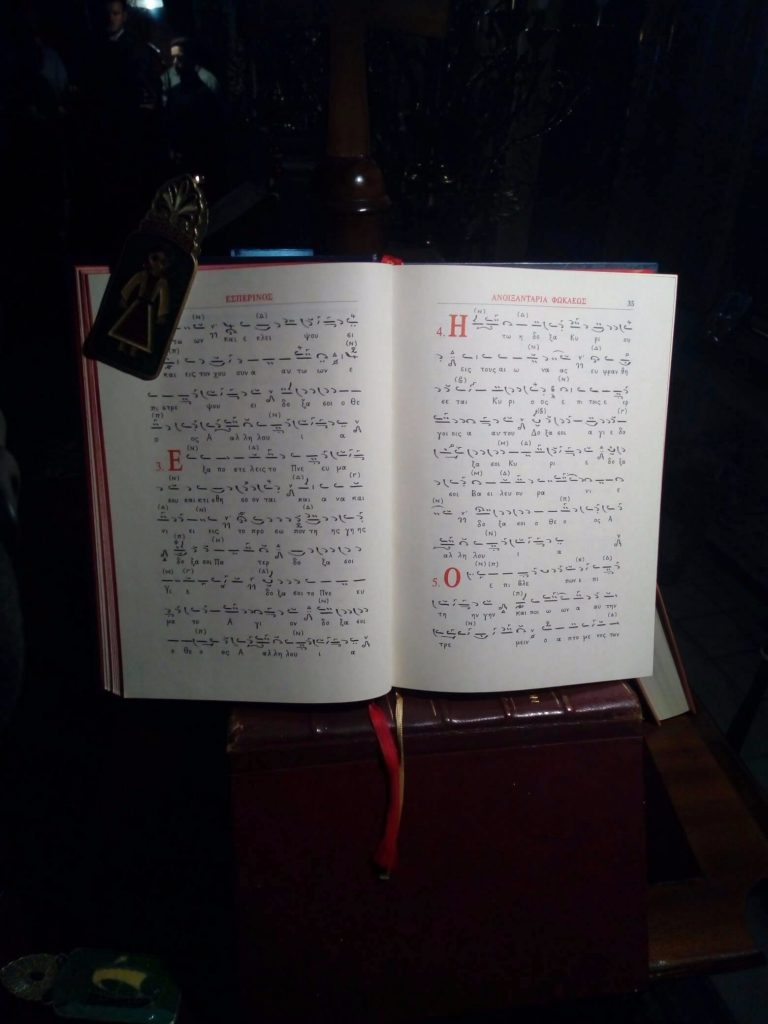 ΕΣΠΕΡΙΝΟΣ
τω ων και ε κλει ψου σι
και εις τον χου συν α αυ τω ων ε
πι στρε ψου σι δο ξα σοι ο Θε
ο ος Α αλ λη λου ι α
3. Ε ξα πο στε λεις το Πνε ευ μα
σου και κτι σθη σον ται και α να και
νι εις το προ σω πον τη ης γη ης
δο ξα σοι Πα τερ δο ξα σοι
Υι ε δο ξα σοι το Πνε ευ
μα το Α γι ον δο ξα σοι
ο Θε ο ος Α αλ λη λου ι α
ΑΝΟΙΞΑΝΤΑΡΙΑ ΦΩΚΑΕΩΣ 35
4. Η τω η δο ξα Κυ ρι ου
εις τους αι ω να ας ευ φραν θη
σε ται Κυ ρι ο ος ε πι τοις ε ερ
γοις α αυ του Δο ξα σοι α γι ε δο
ξα σοι Κυ ρι ε δο ξα
σοι Βα σι λευ ου ρα νι ε
δο ξα σοι ο Θε ο ος Α
αλ λη λου ι α
5. Ο ε πι βλε πων ε πι
τη ην γην και ποι ω ων α αυ την
τρε μειν ο α πτο με νος των